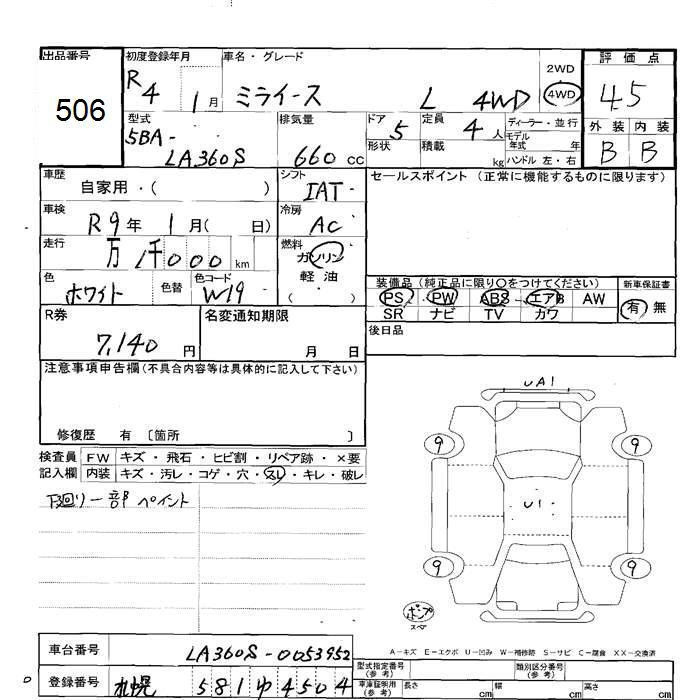 出品番号
506
初度登録年月
R4 1月
車名・グレード
ミライース L 4WD
2WD
4WD
評価点
4.5
型式
5BA-
LA360S
排気量
660 cc
ドア 5
形状
定員 4 人
積載 kg
ディーラー・並行
モデル年式 年
ハンドル 左・右
外装 内装
B B
車歴
自家用・( )
シフト
IAT-
セールスポイント (正常に機能するものに限ります)
車検
R9年 1月( 日)
冷房
AC
走行
万 1千000 km
燃料
ガソリン
軽油
( )
色
ホワイト
色替
色コード
W19
装備品 (純正品に限り〇をつけてください)
PS・PW・ABS・エアB AW
SR ナビ TV カワ
新車保証書
有 無
R券
7,140 円
名変通知期限
月 日
後日品
注意事項申告欄 (不具合内容等は具体的に記入して下さい)
修復歴 有 〔箇所 〕
検査員
記入欄
FW キズ・飛石・ヒビ割・リペア跡・×要
内装 キズ・汚レ・コゲ・穴・スレ・キレ・破レ
下廻り一部ペイント
UA1
9 9
U1
9 9
ポンプ
スペア
A−キズ E−エクボ U−凹み W−補修跡 S−サビ C−腐食 XX−交換済
車台番号
LA360S-0053952
登録番号
札幌 581 ゆ 4504
型式指定番号
(参考)
類別区分番号
(参考)
車庫証明用
(参考)
長さ cm
幅 cm
高さ cm